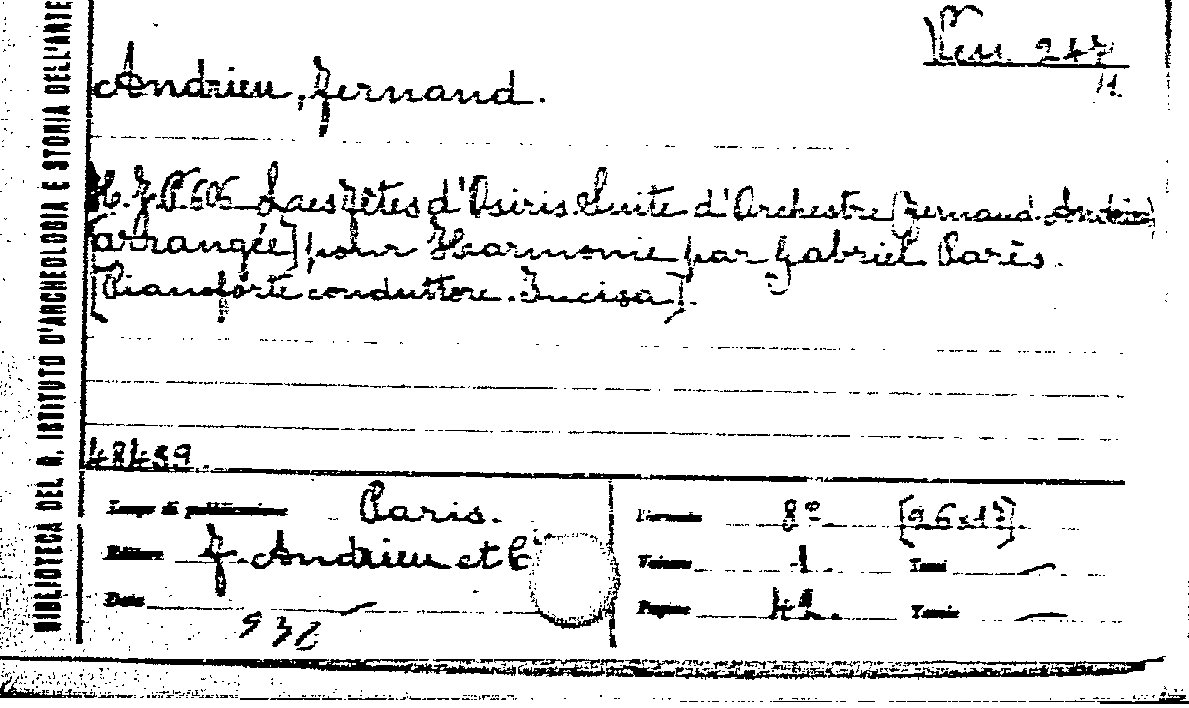 BIBLIOTECA DEL R. ISTITUTO D'ARCHEOLOGIA E STORIA DELL'ARTE
Vess. 247
11
Andrieu, Fernand.
H. F. P. 606 Laes Fêtes d'Osiris. Suite d'Orchestre [Fernand Andrieu,
arrangée] pour Harmonie par Gabriel Parès.
[Pianoforte conduttore. Incisa].
48459
Luogo di pubblicazione Paris. Formato 8º [26x17].
Editore F. Andrieu et C Volume 1 Tomi —
Data — Pagine 42. Tavole —
932